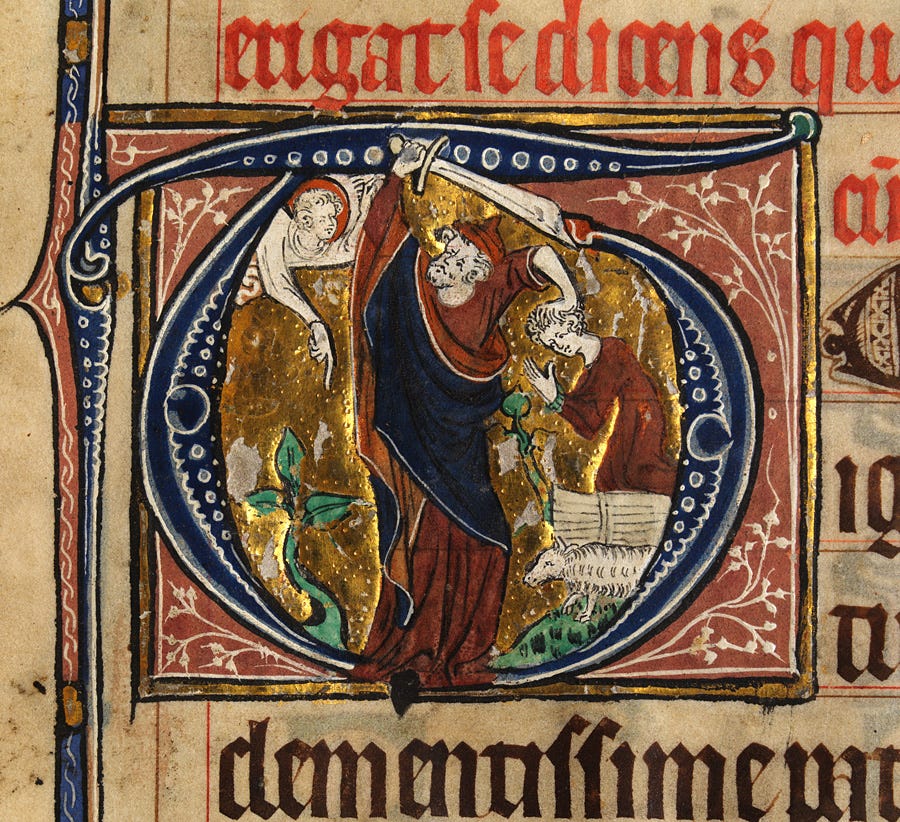 erigat se dicens qu
T
E
ig
tu
clementissime pat